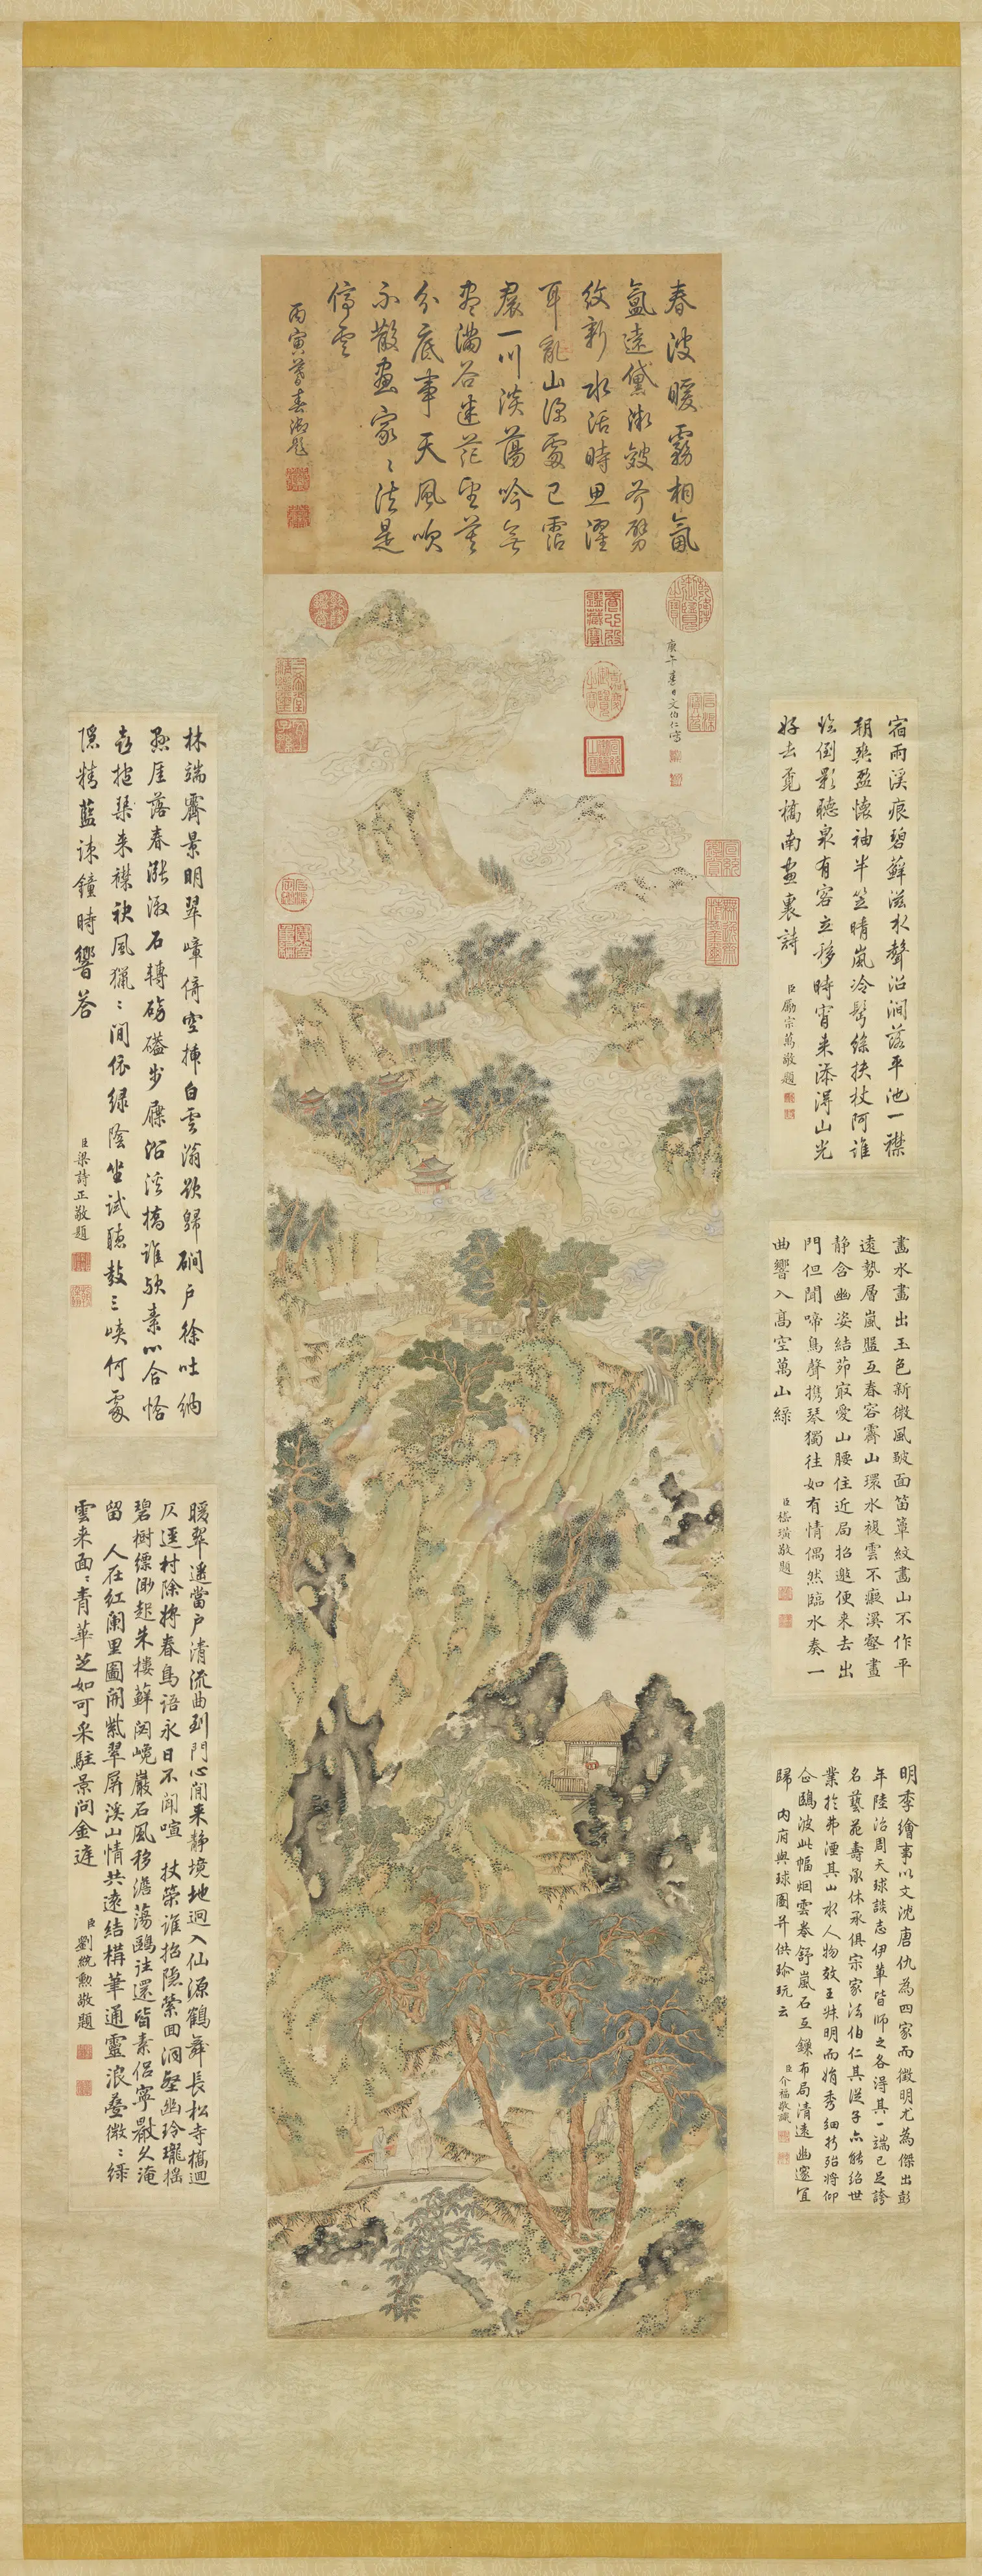 春波暖霧相氤
氳遠黛湘皴芥劈
紋新水活時思濯
耳亂山深處已霑
裙一川淡蕩吟無
盡滿谷迷茫望莫
分底事天風吹
不散畫家家法是
停雲
丙寅暮春御題
庚午春日文伯仁寫
宿雨溪痕碧蘚滋水聲沿澗落平池一襟
朝爽盈懷袖半笠晴嵐冷髩絲扶杖阿誰
吟倒影聽泉有客立移時宵来添得山光
好去覓橋南畫裏詩
臣勵宗萬敬題
畫水畫出玉色新微風皺面笛簟紋畫山不作平
遠勢層嵐盤互春容霽山環水複雲不礙溪壑晝
靜含幽姿結茆最愛山腰住近局招邀便来去出
門但聞啼鳥聲携琴獨往如有情偶然臨水奏一
曲響入髙空萬山緑
臣嵇璜敬題
明季繪事以文沈唐仇為四家而徵明尤為傑出彭
年陸治周天球談志伊輩皆師之各得其一端已足誇
名藝苑壽承休承俱宗家法伯仁其從子亦能紹世
業於弗湮其山水人物效王叔明而娟秀細折殆將仰
企鷗波此幅烟雲卷舒嵐石互錯布局清遠幽邃宜
歸 内府與球圖并供珍玩云
臣介福敬識
林端霽景明翠嶂倚空揷白雲滃欲歸磵户徐吐納
懸厓落春漲漱石轉磅礚步屧沿溪橋誰歟素心合恰
好抱琴来襟袂風獵獵間依绿陰坐試聽鼓三峽何處
隠精藍疎鐘時響荅
臣梁詩正敬題
暖翠遥當户清流曲到門心閒来靜境地迥入仙源鶴舞長松寺橋迴
仄逕村除將春鳥語永日不聞喧 扶筇誰招隠縈回洞壑幽玲瓏摇
碧樹縹渺起朱樓蘚闼巉巖石風移澹蕩鷗往還皆素侣寧厭久淹
留 人在紅闌里圖開紫翠屏溪山情共遠結構筆通靈浪叠微微緑
雲来面面青華芝如可采駐景问金庭
臣劉統勲敬題